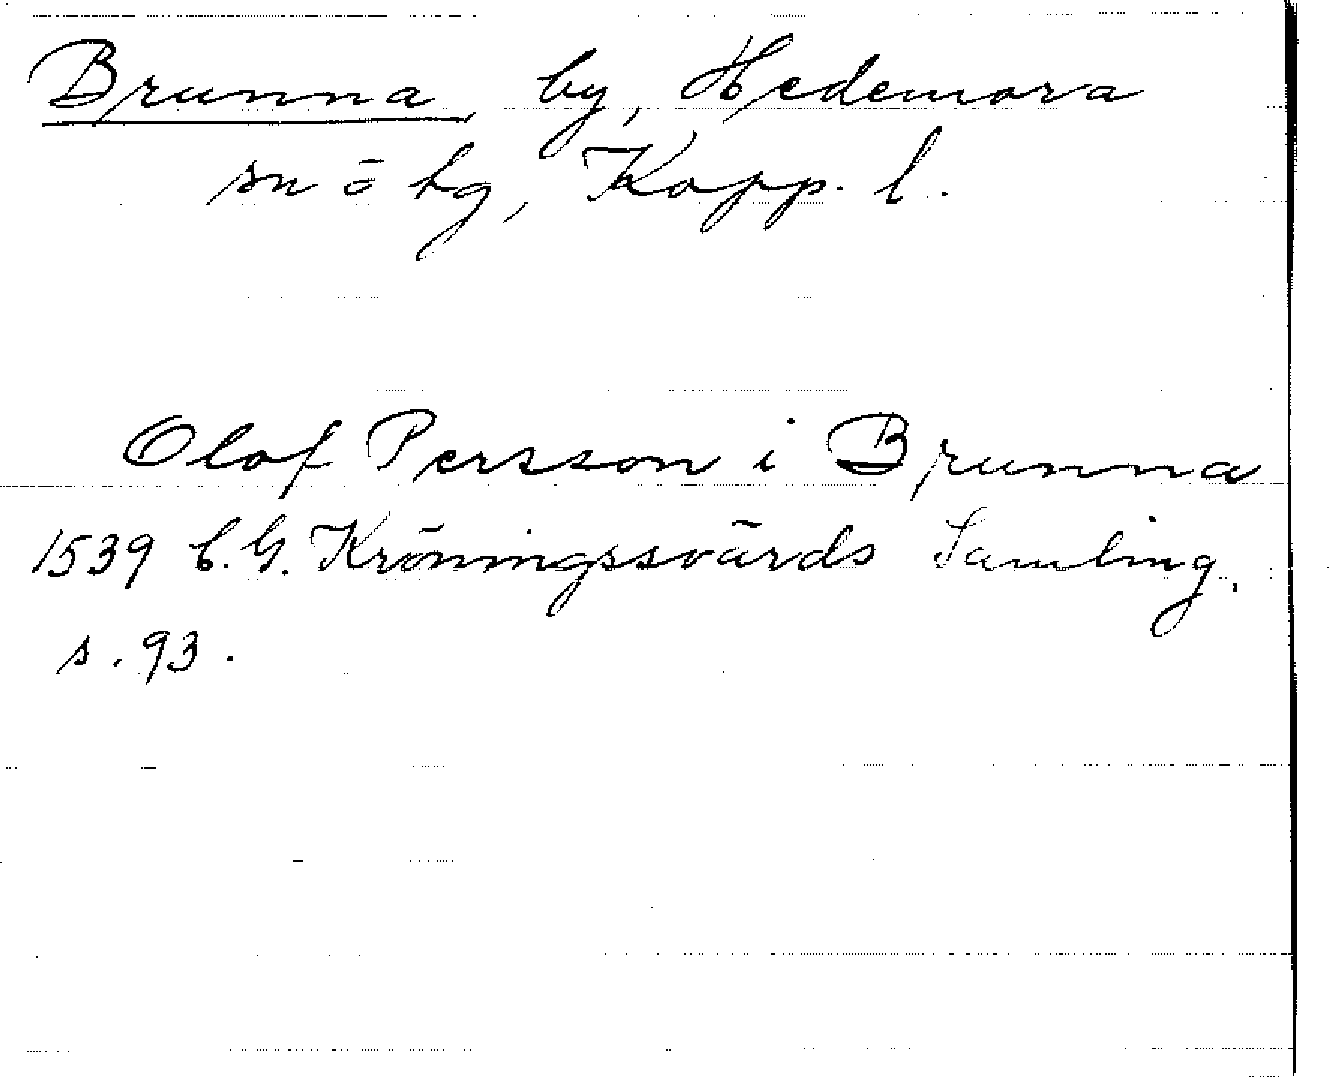 Brunna, by, Hedemora
sn o hg, Kopp. l.
Olof Persson i Brunna
1539 C.G. Kröningssvärds Samling.
s. 93.